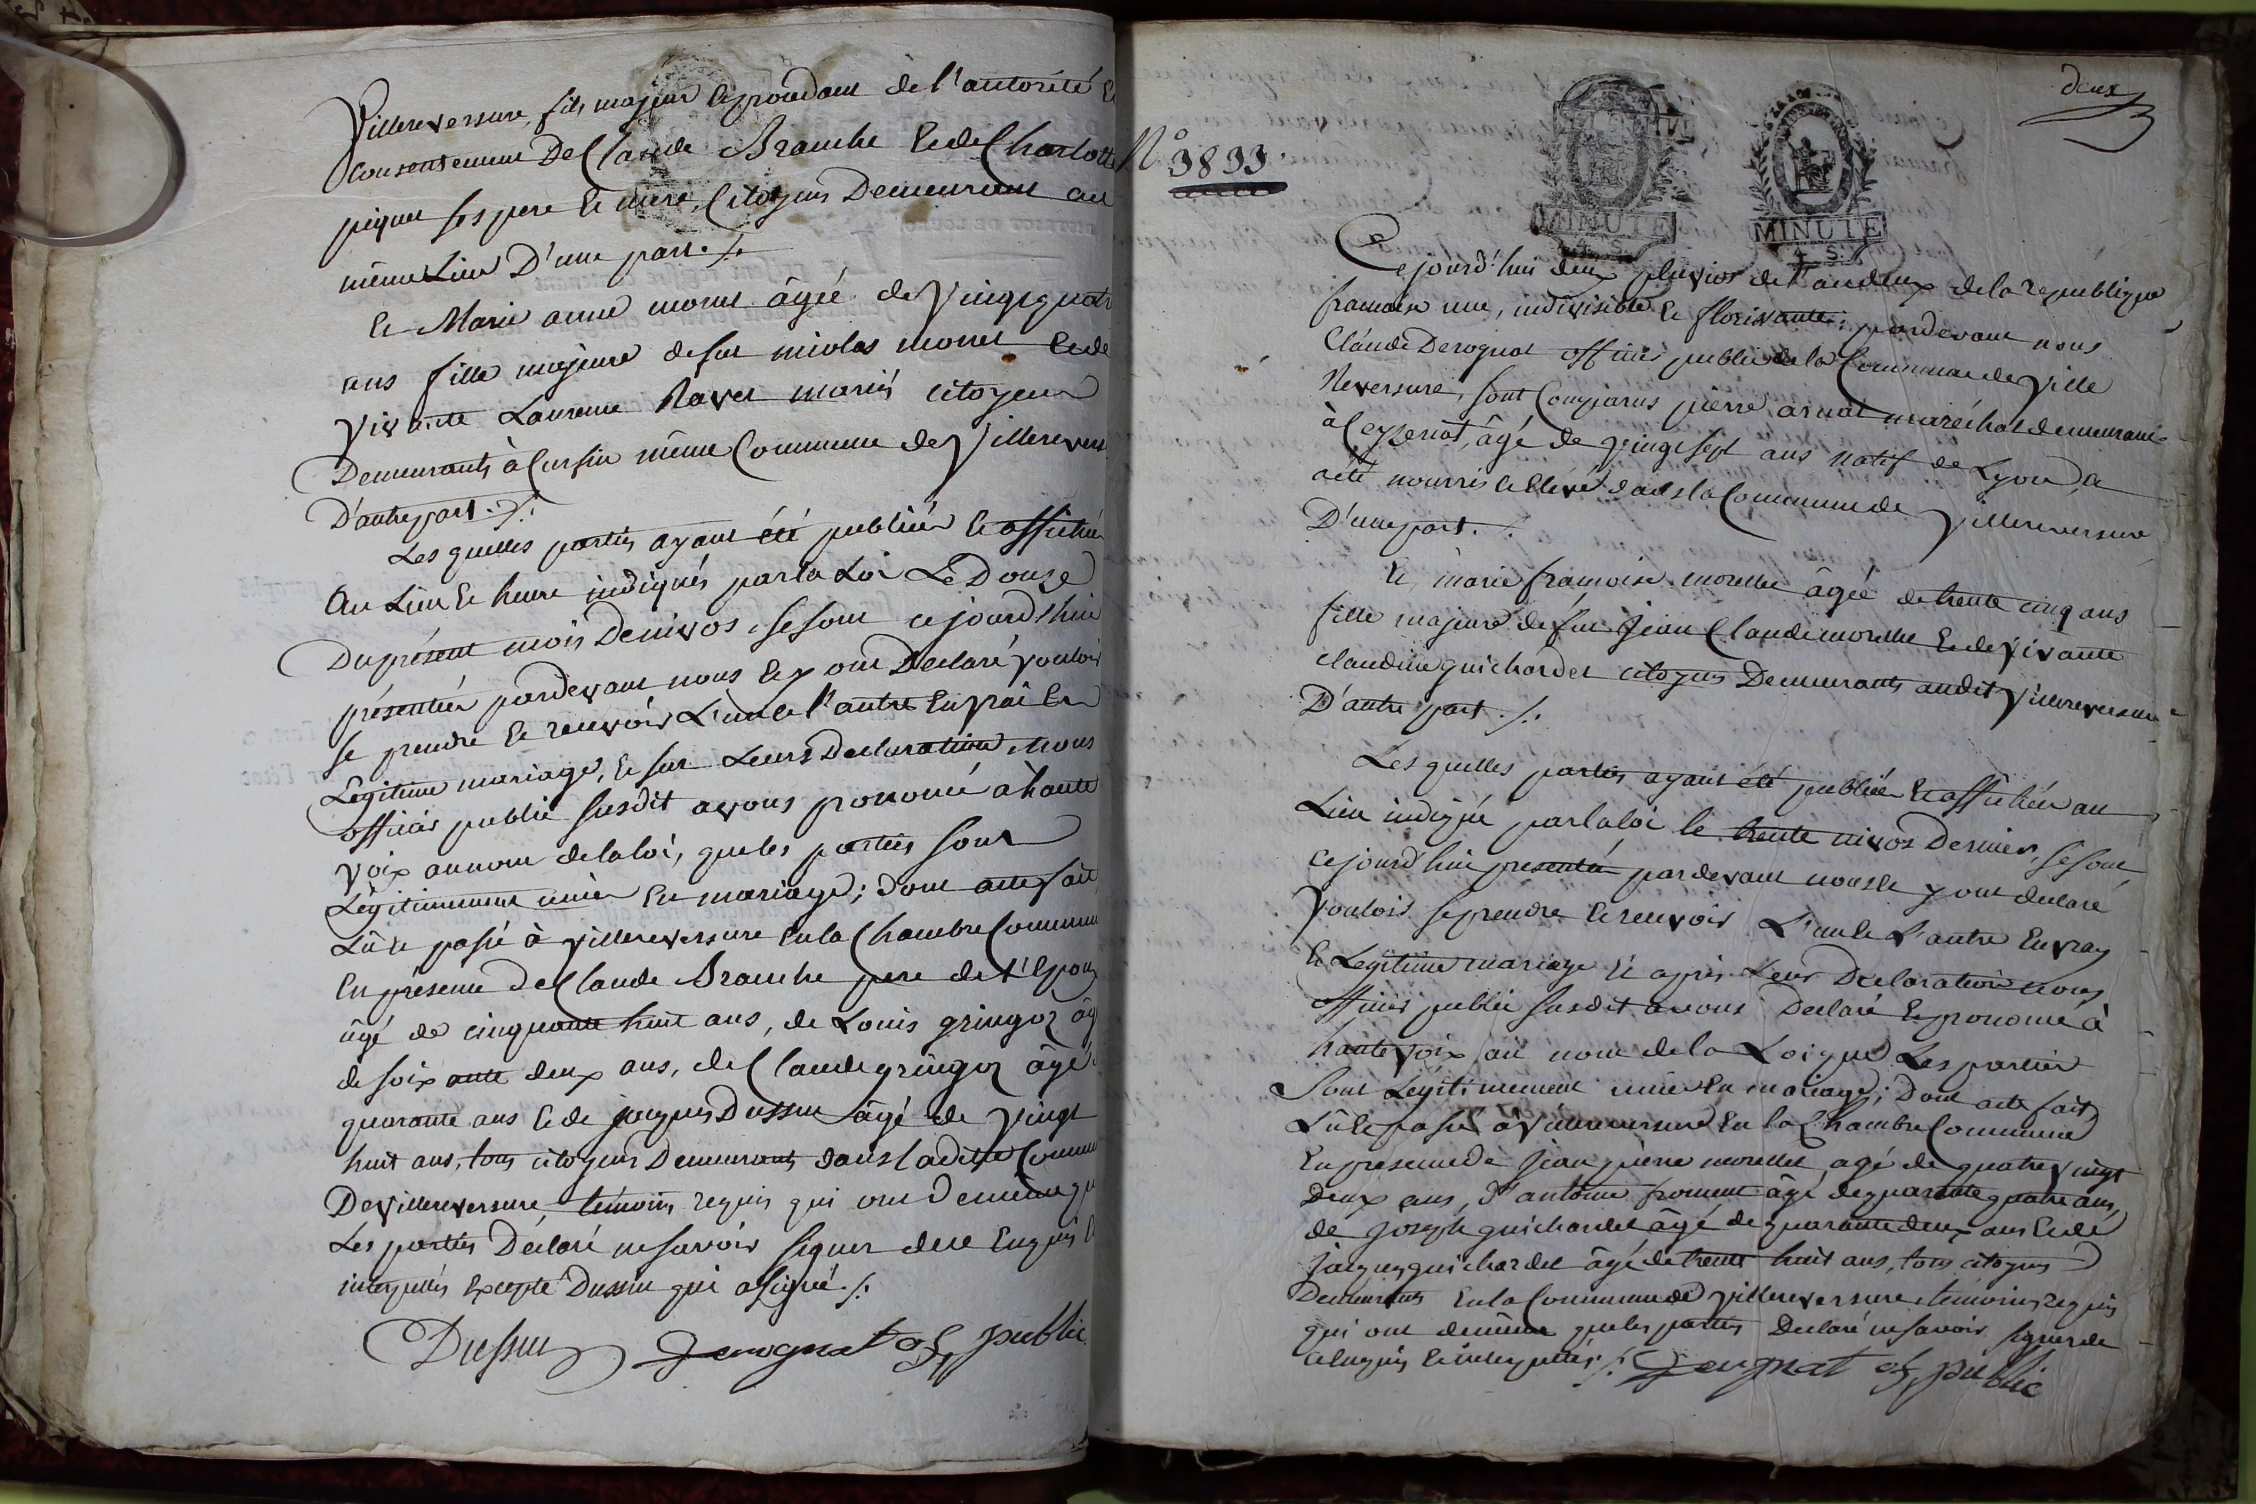 Villereversure, fils majeur dependant de l'autorité Et
Consentement De Claude Branche Et de Charlotte
piquet ses pere Et mere, Citoyens Demeurant au
même Lieu D'une part. /.
Et Marie anne monet âgée de Vingt quatre
ans fille majeure de feu nicolas monet Et de
Vivante Laurence Ravet mariés citoyens
Demeurants à Cursin même Commune de Villerevers
D'autre part. /.
Les quelles parties ayant été publiées Et affichées
Au Lieu Et heure indiqués par la Loi Le Douze
Du présent mois De nivos, se sont ce jourd'huie
présentées pardevant nous Et y ont Declaré vouloir
se prendre Et recevoir L'un Et l'autre En vrai Et
Légitime mariage, Et sur Leurs Declaration, Nous
officier public susdit avons prononcé à haute
voix au nom de la loi, que les parties sont
Légitimement unies En mariage; dont acte fait
Lû Et passé à Villereversure En la Chambre Commune
En présence De Claude Branche pere de l'Epoux
âgé de cinquante huit ans, de Louis gringoz âg
de soixante deux ans, de Claude gringoz âgé
quarante ans Et de jacques Dussuc âgé de Vingt
huit ans, tous citoyens Demeurants dans la ditte Commu
De villereversure, témoins requis qui ont De même qu
Les parties Déclaré ne savoir signer de ce Enquis Et
interpellés Excepté Dussuc qui a signé. /.
Dussuc Derognat off. public
deux
N° 3833.
MINUTE
4. S.
MINUTE
4. S.
Ce jourd'hui deux pluvios de l'an deux de la republique
francaise une, indivisible Et florissante; pardevant nous
Claude Derognat officier public de la Commune de Ville
Reversure, sont Comparus pierre arnat maréchal demeurant
à Ceyzeriat, âgé de vingt sept ans natif de Lyon, a
été nourris Et Elevé dans la Commune de Villereversure
D'une part. /.
Et marie francoise morellet âgée de trente cinq ans
fille majeure de feu Jean Claude morellet Et de Vivante
claudine guichardet citoyens Demeurants audit Villereversure
D'autre part. /.
Les quelles parties ayant été publiées Et affichées au
Lieu indiqué par la loi le trente nivos Dernier, se sont
ce jourd'hui presentés pardevant nous Et y ont declaré
vouloir se prendre Et recevoir L'un Et L'autre En vray
Et Legitime mariage Et après Leur Declaration nous
officier public susdit avons Declaré Et prononcé à
haute voix au nom de la Loi que Les parties
Sont Légitimement unies En mariage; Dont acte fait
Lû Et passé à Villereversure En la Chambre Commune
En presence de Jean pierre morellet agé de quatre vingt
Deux ans, d'antoine froment âgé de quarante quatre ans,
de Joseph guichardet âgé de quarante deux ans Et de
Jacques guichardet âgé de trente huit ans, tous citoyens
Demeurants En la Commune de Villereversure, témoins requis
qui ont de même que les parties Declaré ne savoir signer de
ce Enquis Et interpellés. /. Derognat off. public